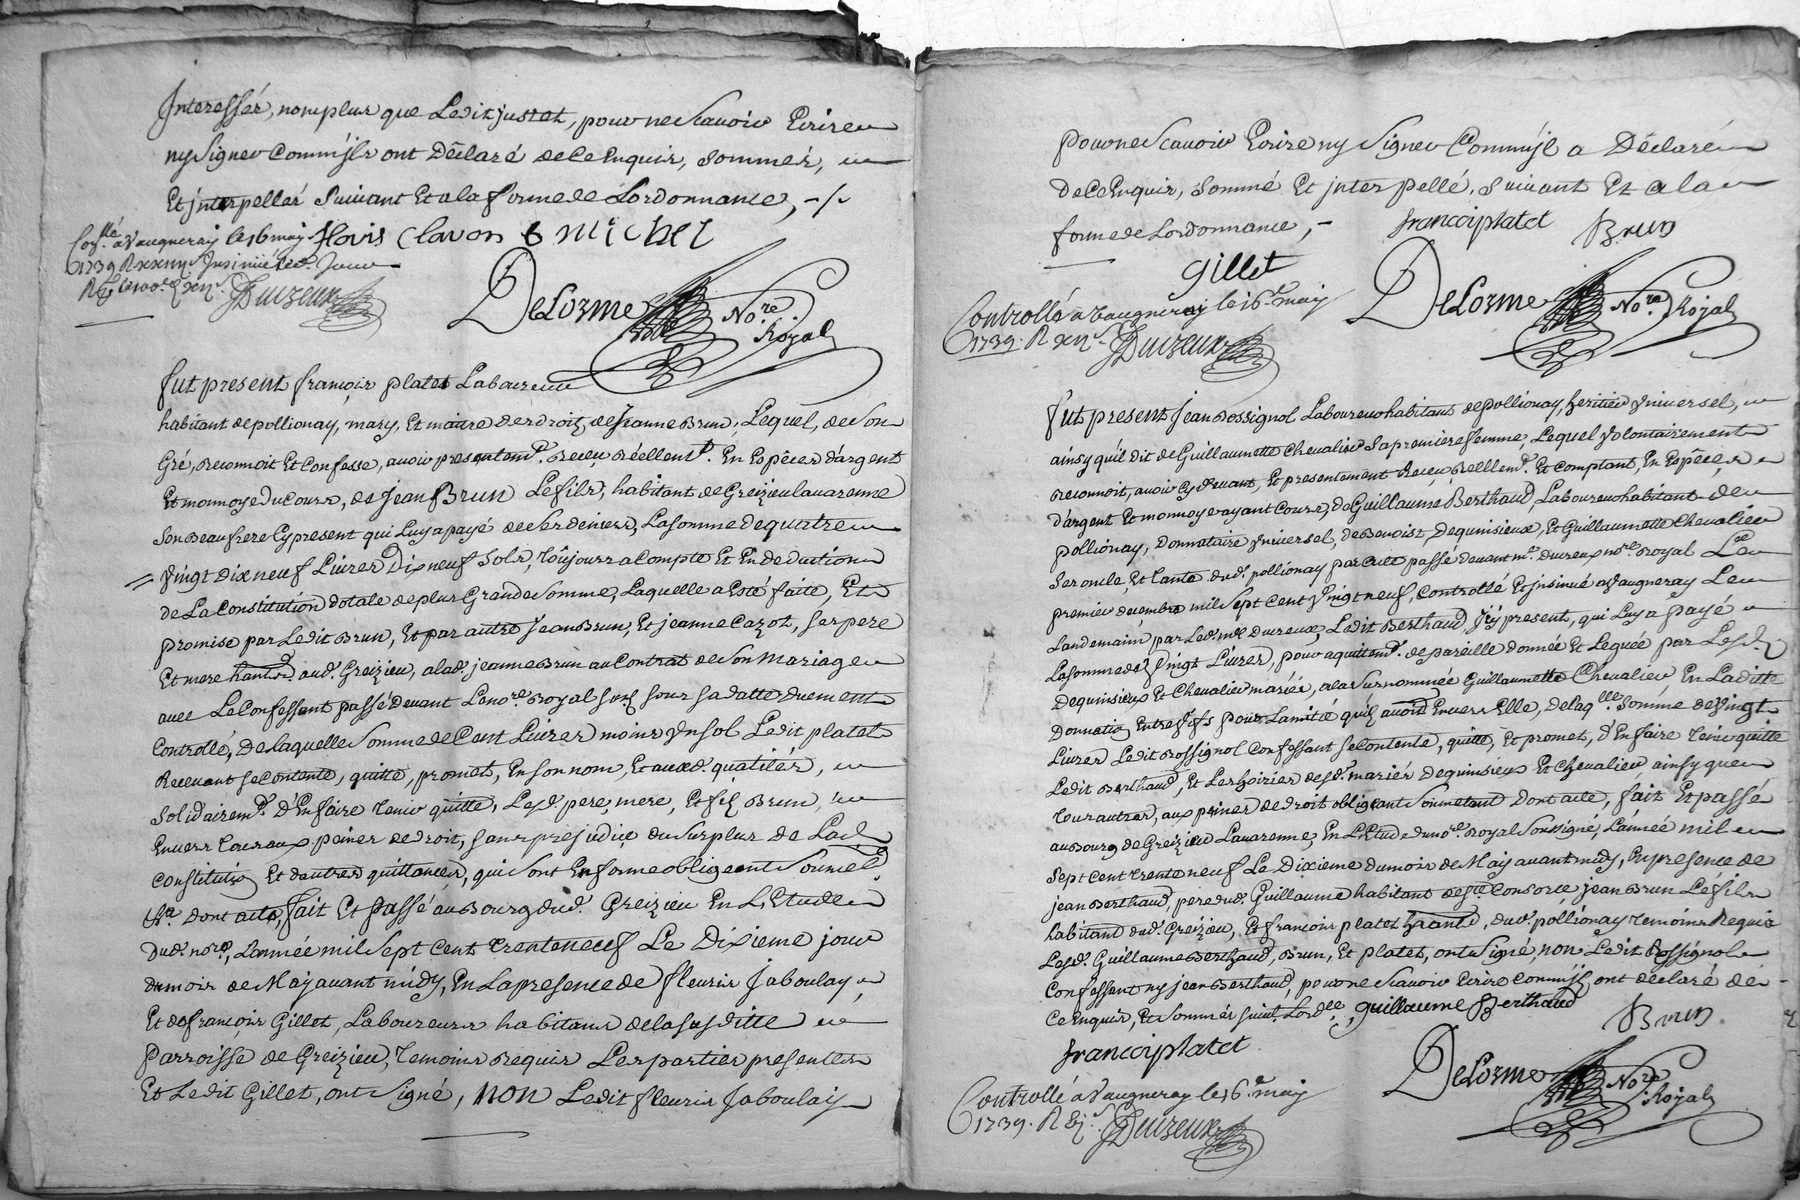 Interessés, nomplus que Ledit justet, pour ne Scauoir Ecrire
ny Signer Commils ont Déclaré de Ce Enquis, Sommés,
Et jnterpellés Suiuant Et a la forme de Lordonnance, -/-
flouis Clavon Michel
Con.llé a Vaugneray le 16 may
1739 R xxny. Jnsinüé led. Jour
Duizeux
DeLorme No.re Royal
fut present françois platet Laboureur
habitant de pollionay, mary, Et maitre des droits, de Jeanne Brun, Lequel, de Son
Gré, reconnoit Et Confesse, auoir presentem.t Receu réellem.t En Espéces d'argent
Et monnoye du Cours, de Jean Brun Le fils, habitant de Greizieu lauarenne
Son Beaufrere Cy present qui Luy a payé de Ses deniers, La Somme de quatre
Vingt Dix neuf Liures Dix neuf Sols, toûjours a Compte Et En deduction
de La Constitution dotale de plus Grande Somme, Laquelle a Esté faite, Et
promise par Ledit Brun, Et par autre Jean Brun, Et jeanne Cazot, ses pere
Et mere aud. Greizieu, a lad. jeanne Brun au Contrat de Son Mariage
auec Le Confessant passé Deuant Le no.re Royal Sous Sa datte duement
Controllé, De laquelle Somme de Cent Liures moins Vn sol Ledit platet
Receuant se contente, quitte, promet, En son nom, Et auxd. qualités,
Solidairem.t D'En faire tenir quitte, Lesd. pere, mere, Et fils Brun,
Enuers tous aux peines de droit, sans prejudice du Surplus de Lad.
Constitution Et d'autres quittances, qui Sont En forme obligeant Soumet.
dont acte, fait Et passé au Bourg dud. Greizieu En L'Etude
Dud. no.re, L'année mil Sept Cent trente neuf Le Dixieme jour
du mois de May auant midy, En La presence de fleuris Jaboulay
Et de françois Gillet, Laboureurs habitans de la susditte
Parroisse de Greizieu, temoins requis Les parties presentes
Et Ledit Gillet, ont Signé, non Ledit fleuris Jaboulay
pour ne Scauoir Ecrire ny Signer Commil a Déclaré
de Ce Enquis, Sommé Et jnterpellé, Suiuant Et a la
forme de Lordonnance, -
francoiplatet Brun
gillet
DeLorme No.re Royal
Controllé a Vaugneray le 16.e may
1739. R xn.s Duizeux
fut present Jean Rossignol Laboureur habitant de pollionay, heritier Vniuersel,
ainsy qu'il dit de Guillaumette Cheualier Sa premiere femme, Lequel Volontairement
reconnoit, auoir Cy deuant, Et presentement Receu Reellem.t Et Comptant, En Espéces
d'argent Et monnoye ayant Cours, de Guillaume Berthaud, Laboureur habitant de
pollionay, Donnataire Vniuersel, de Benoist Dequinsieux, Et Guillaumette Cheualier
Ses oncle, Et tante dud. pollionay par acte passé deuant m.e Dureux no.re Royal Le
premier decembre mil Sept Cent Vingt neuf, Controllé Et jnsinué a Vaugneray Le
Landemain par Led. m.e Dureux, Ledit Berthaud, jcy present, qui Luy a payé
La Somme de Vingt Liures, pour aquitem.t de pareille donnée Et Leguée par Lesd.
Dequinsieux Et Cheualier mariés, a la Surnommée Guillaumette Cheualier, En Laditte
Donnation Entre Vifs pour Lamitié quils auoient Enuers Elle, de laq.lle Somme de Vingt
Liures Ledit Rossignol Confessant se Contente, quitte, Et promet, d'En faire tenir quitte
Ledit Berthaud, Et Les hoiries desd. mariés Dequinsieux Et Cheualier ainsy que
tous autres, aux peines de droit obligeant Soumettant Dont acte, fait Et passé
au Bourg de Greizieu Lauarenne, En L'Etude du no.re Royal Soussigné, L'année mil
Sept Cent trente neuf Le Dixieme du mois de May auant midy, En presence de
jean Berthaud, pere dud. Guillaume habitant de Consorce, jean Brun Le fils
habitant dud. Greizieu, Et françois platet dud. pollionay temoins Requis
Lesd. Guillaume Berthaud, Brun, Et Platet, ont Signé, non Ledit Rossignol
Confessant ny jean Berthaud, pour ne Scauoir Ecrire Commils ont déclaré de
Ce Enquis, Et Sommés suiu.t Lord.ce guillaume Berthaud
Brun
francoiplatet
DeLorme No.re Royal
Controllé a Vaugneray le 16.e may
1739. R Duizeux